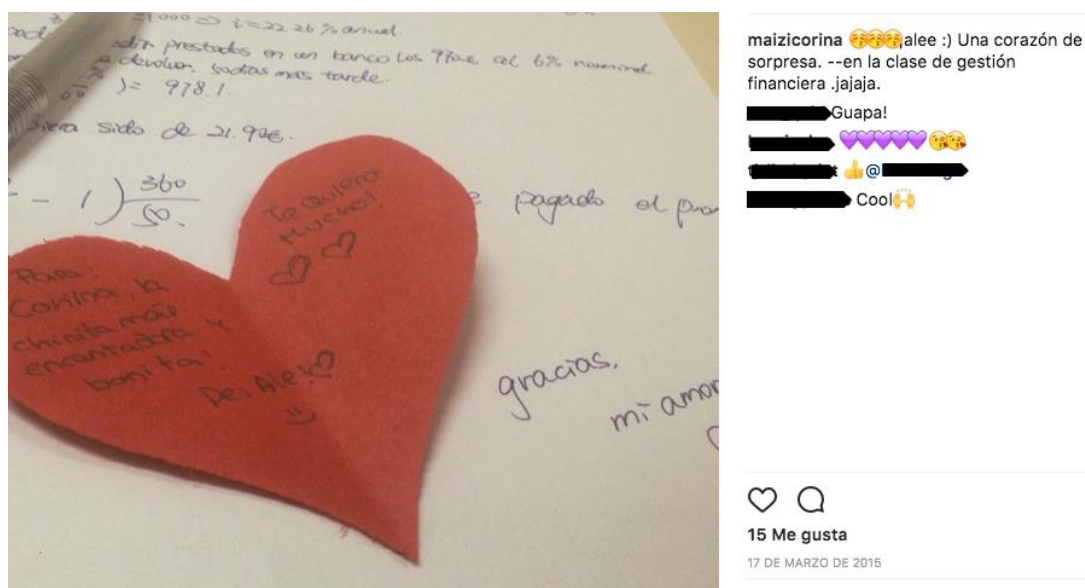 =1000 => i=22.26% anual.
prestados en un banco los 970€ al 6% nominal
devolver, 50 días más tarde.
)= 978.1.
sido de 21.92€.
- 1) 360
50.
pagado el
Para:
Corina, la
chinita más
encantadora y
bonita!
De: Ale!
Te Quiero
Mucho!
gracias.
mi amor
maizicorina 😚😚😚,alee :) Una corazón de
sorpresa. --en la clase de gestión
financiera .jajaja.
Guapa!
💜💜💜💜💜 😚😘
👍@
Cool🙌
15 Me gusta
17 DE MARZO DE 2015